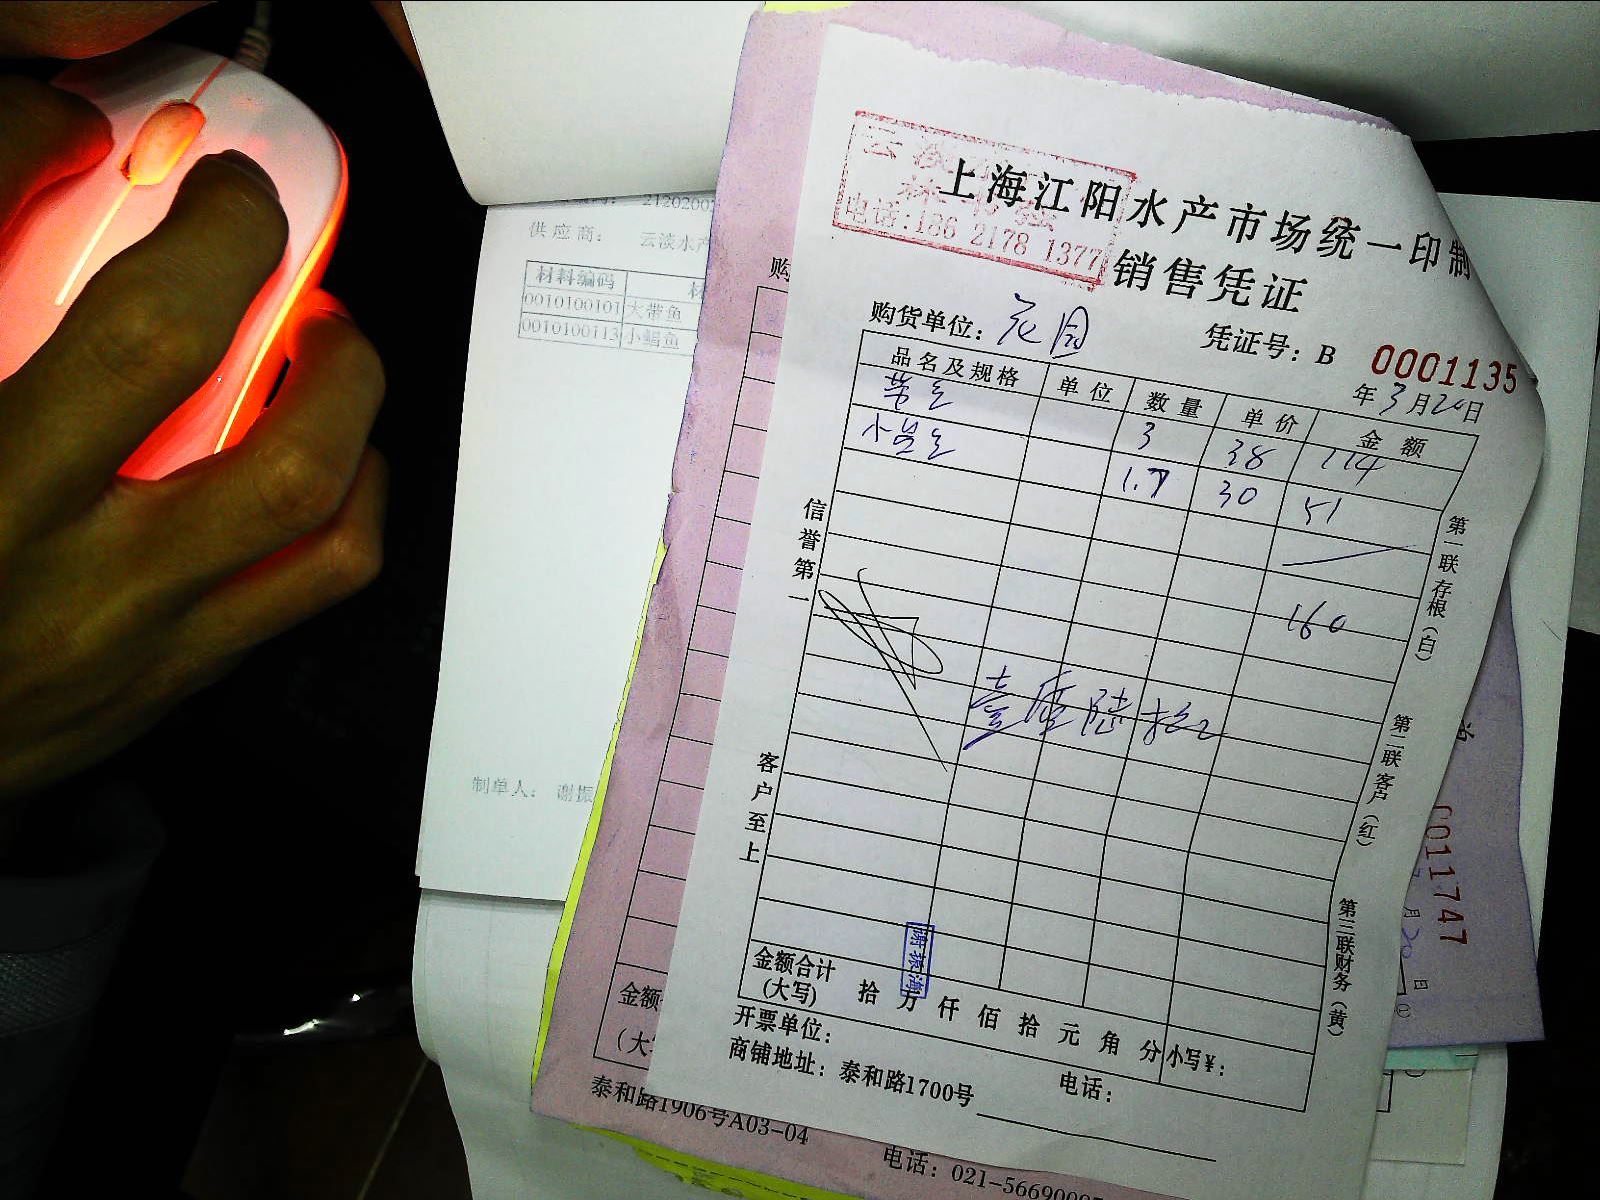 云淡
电话:186 2178 1377
上海江阳水产市场统一印制
销售凭证
购货单位: 花园
凭证号: B 0001135
年 3 月 20 日
品名及规格 单位 数量 单价 金额
3 38 114
小 1.7 30 51
160
壹佰陆拾
信誉第一
客户至上
第一联存根(白)
第二联客户(红)
第三联财务(黄)
金额合计
(大写) 拾 万 仟 佰 拾 元 角 分 小写¥:
开票单位:
商铺地址: 泰和路1700号 电话:
供应商: 云淡水产
材料编码 材
0010100101 大带鱼
0010100113 小鲳鱼
制单人: 谢振
购
金额
(大
泰和路1906号A03-04
电话: 021-5669000
0011747
月 20 日